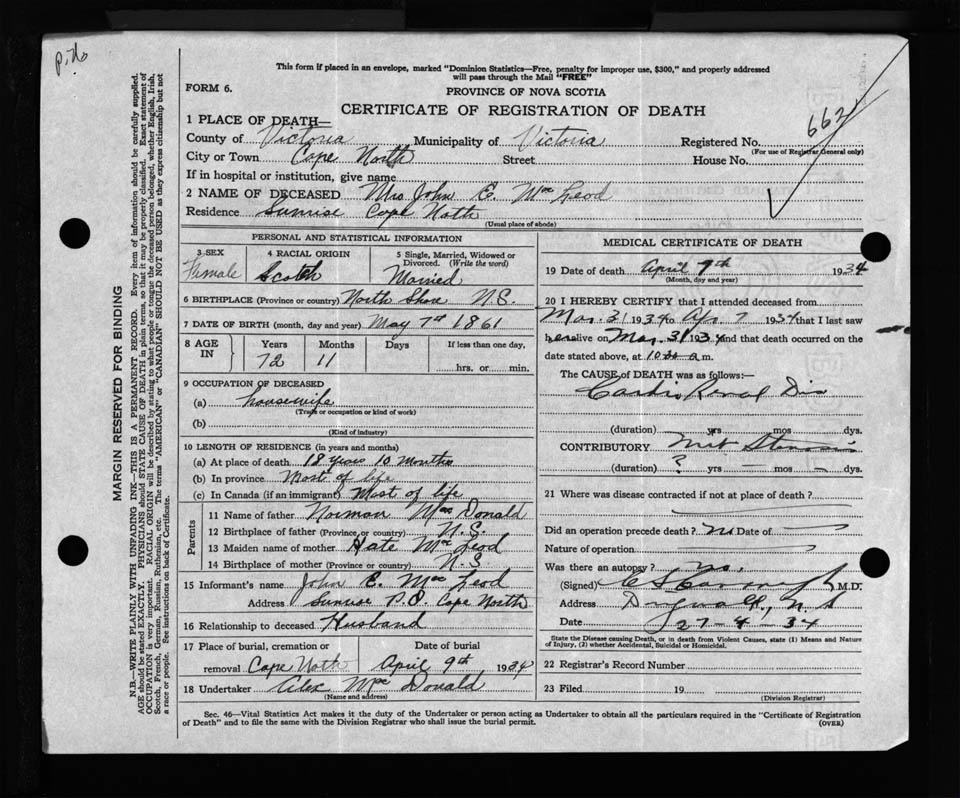 p. No
This form if placed in an envelope, marked "Dominion Statistics—Free, penalty for improper use, $300," and properly addressed
will pass through the Mail "FREE"
FORM 6.
PROVINCE OF NOVA SCOTIA
CERTIFICATE OF REGISTRATION OF DEATH
662
1 PLACE OF DEATH—
County of Victoria Municipality of Victoria Registered No.
(For use of Registrar General only)
City or Town Cape North Street House No.
If in hospital or institution, give name
2 NAME OF DECEASED Mrs John E. Mac Leod
Residence Sunrise Cape North
(Usual place of abode)
PERSONAL AND STATISTICAL INFORMATION
3 SEX Female
4 RACIAL ORIGIN Scotch
5 Single, Married, Widowed or Divorced. (Write the word) Married
6 BIRTHPLACE (Province or country) North Shore N.S.
7 DATE OF BIRTH (month, day and year) May 7th 1861
8 AGE IN Years Months Days If less than one day,
72 11 hrs. or min.
9 OCCUPATION OF DECEASED
(a) housewife
(Trade or occupation or kind of work)
(b)
(Kind of industry)
10 LENGTH OF RESIDENCE (in years and months)
(a) At place of death 18 years 10 months
(b) In province Most of life
(c) In Canada (if an immigrant) Most of life
Parents
11 Name of father Norman Mac Donald
12 Birthplace of father (Province or country) N.S.
13 Maiden name of mother Kate Mac Leod
14 Birthplace of mother (Province or country) N.S
15 Informant's name John E. Mac Leod
Address Sunrise P.O. Cape North
16 Relationship to deceased Husband
17 Place of burial, cremation or
removal Cape North April 9th 1934
18 Undertaker Alex Mac Donald
(Name and address)
MEDICAL CERTIFICATE OF DEATH
19 Date of death April 7th 1934
(Month, day and year)
20 I HEREBY CERTIFY that I attended deceased from
Mar. 31 1934 to Apr. 7 1934 that I last saw
her alive on Mar. 31 1934 and that death occurred on the
date stated above, at 10 a.m.
The CAUSE of DEATH was as follows:—
Cardio Renal Dis
(duration) yrs mos dys.
CONTRIBUTORY Mit Stenosis
(duration) ? yrs — mos — dys.
21 Where was disease contracted if not at place of death ?
Did an operation precede death ? no Date of
Nature of operation
Was there an autopsy ? no.
(Signed) M.D.
Address N S
Date 27-4-34
State the Disease causing Death, or in death from Violent Causes, state (1) Means and Nature
of Injury, (2) whether Accidental, Suicidal or Homicidal.
22 Registrar's Record Number
23 Filed 19
(Division Registrar)
Sec. 46—Vital Statistics Act makes it the duty of the Undertaker or person acting as Undertaker to obtain all the particulars required in the "Certificate of Registration
of Death" and to file the same with the Division Registrar who shall issue the burial permit.
(OVER)
MARGIN RESERVED FOR BINDING
N.B.—WRITE PLAINLY WITH UNFADING INK—THIS IS A PERMANENT RECORD. Every item of information should be carefully supplied.
AGE should be stated EXACTLY. PHYSICIANS should STATE CAUSE OF DEATH in plain terms, so that it may be properly classified. Exact statement of
OCCUPATION is very important. RACIAL ORIGIN will be described by stating to what people or tongue the deceased person belonged, whether English, Irish,
Scotch, French, German, Russian, Ruthenian, etc. The terms "AMERICAN" or "CANADIAN" SHOULD NOT BE USED as they express citizenship but not
a race or people. See instructions on back of Certificate.